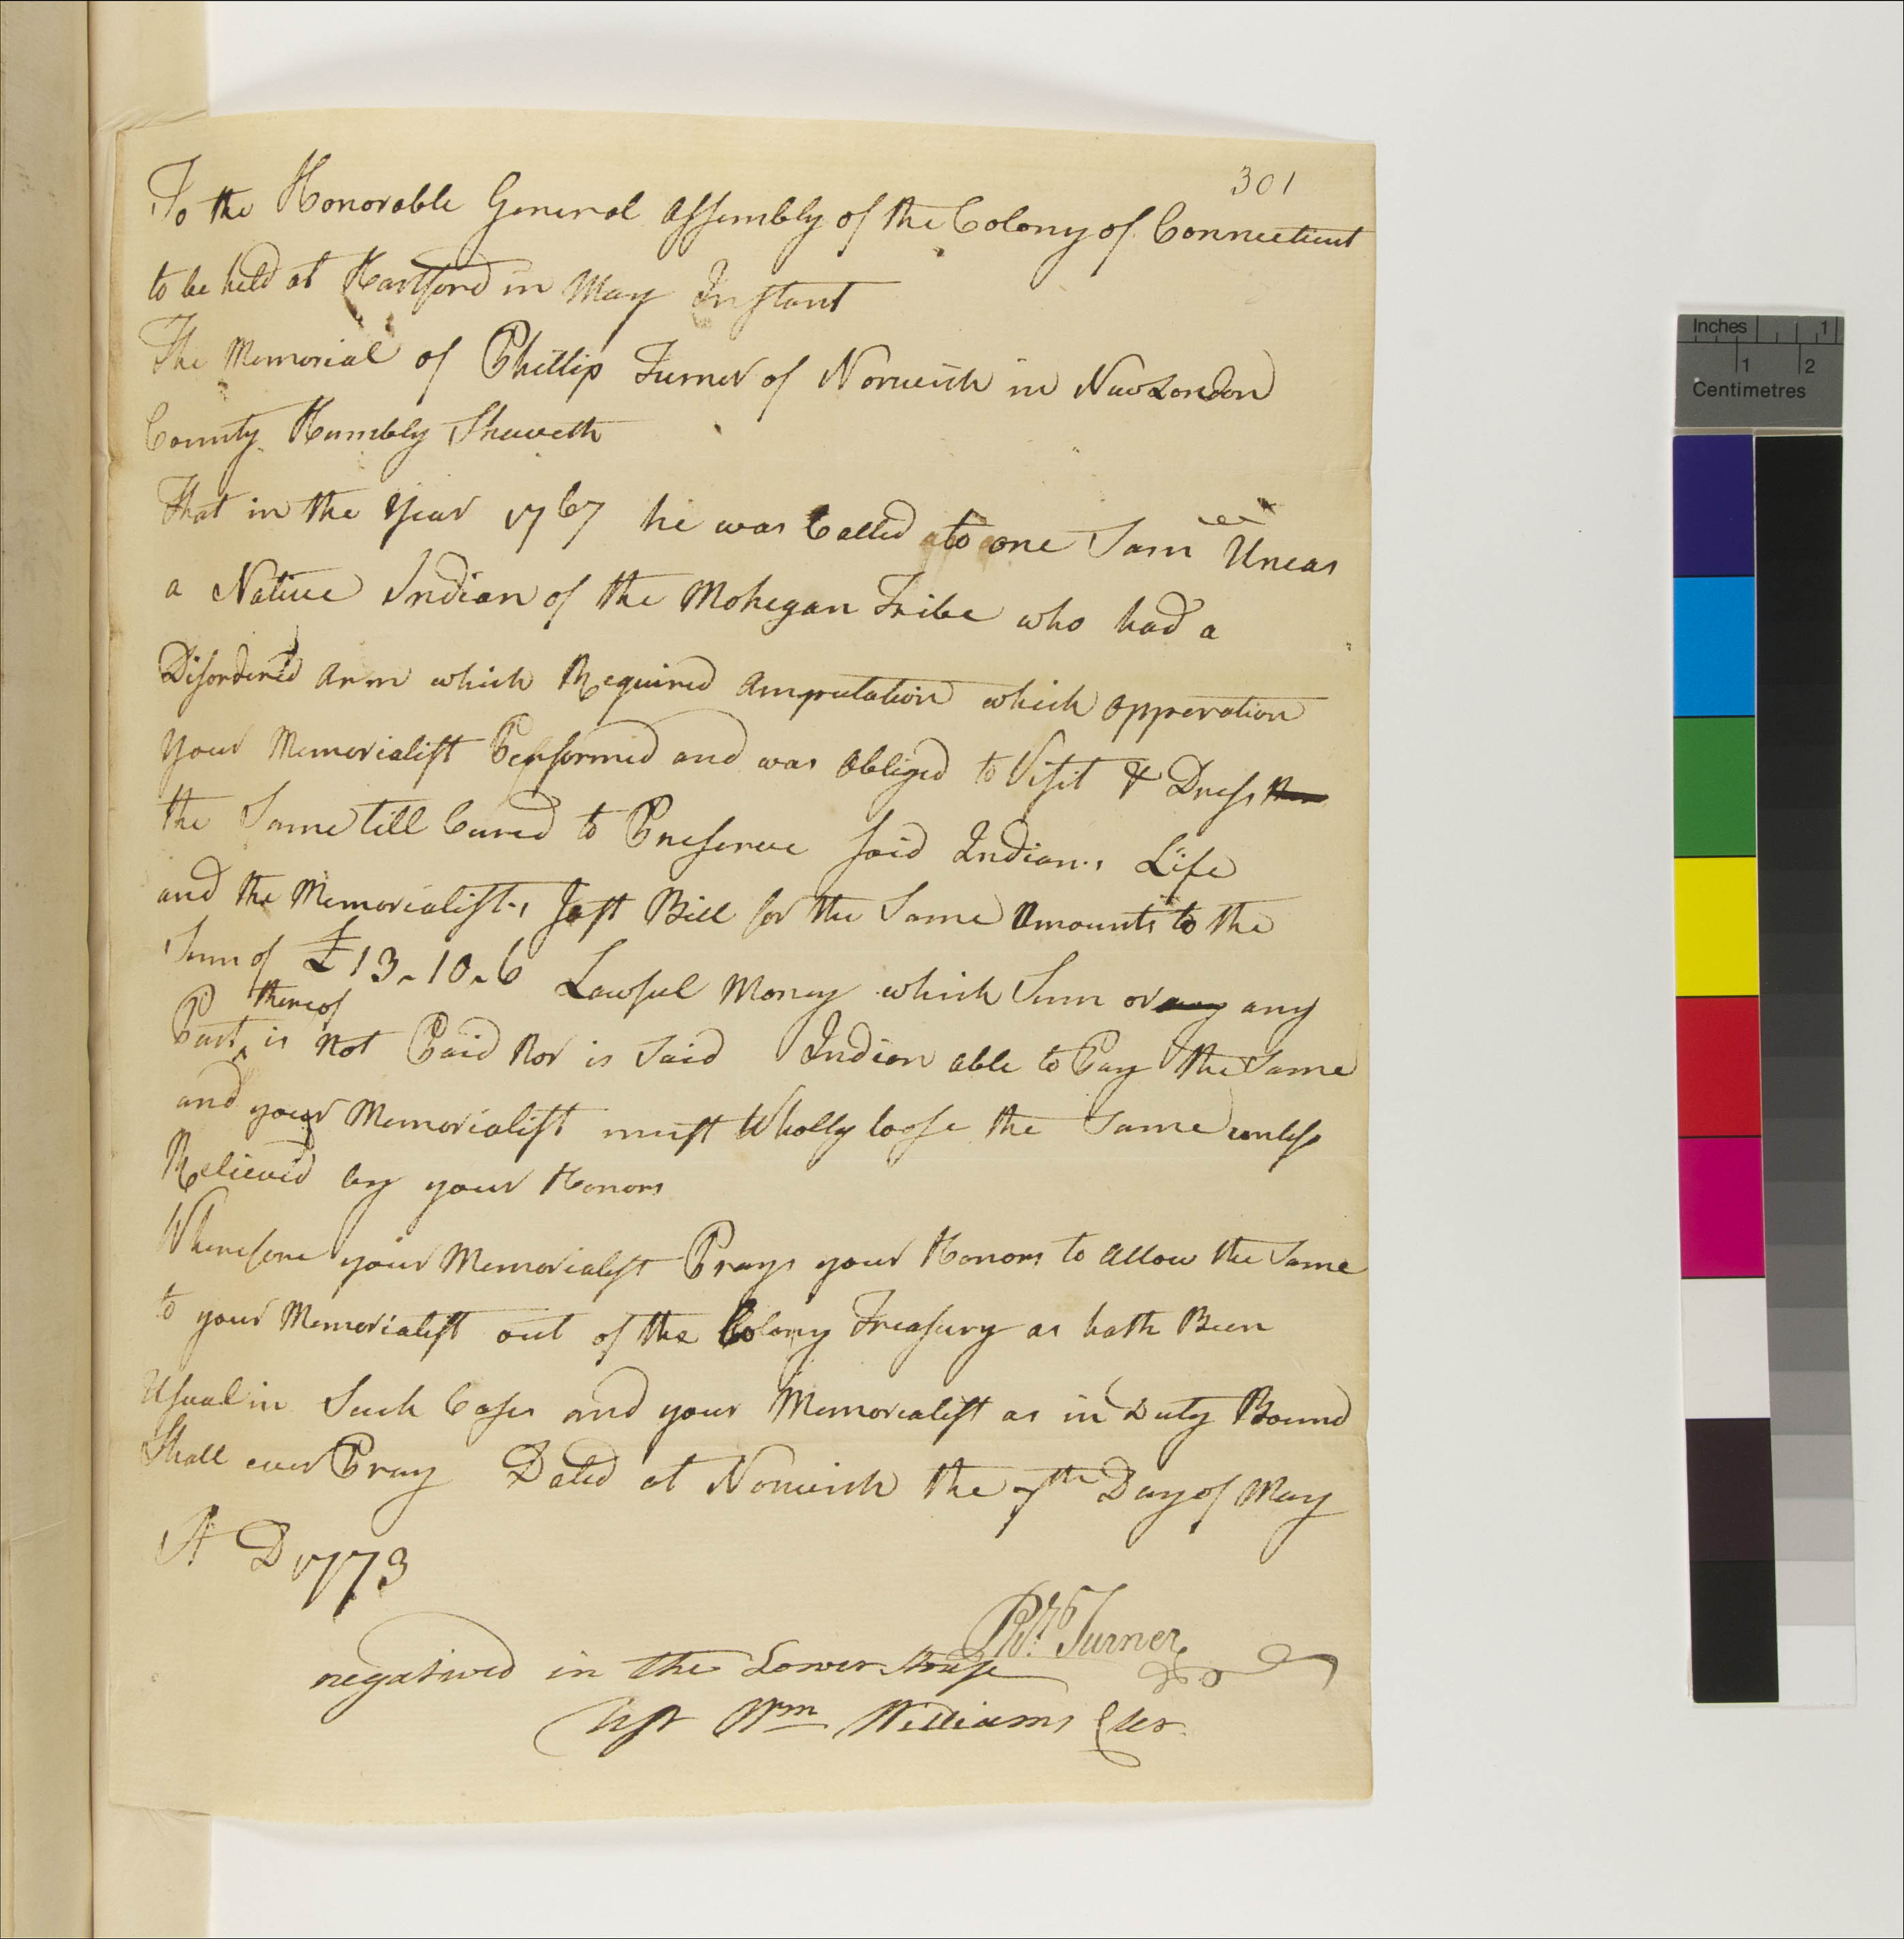 301
To the Honorable General Assembly of the Colony of Connecticut
to be held at Hartford in May Instant
The Memorial of Phillip Turner of Norwich in New London
County Humbly Sheweth
That in the Year 1767 he was Called to one Sam Uncas
a Native Indian of the Mohegan Tribe who had a
Disordered arm which Required amputation which opperation
your Memorialist Performed and was obliged to Visit & Dress
the Same till Cured to Preserve said Indian's Life
and the Memorialist's Just Bill for the Same amounts to the
Sum of £13-10-6 Lawful Money which Sum or any any
Part thereof is not Paid Nor is Said Indian able to Pay the Same
and your Memorialist must Wholly loose the Same unless
Relieved by your Honors
Wherefore your Memorialist Prays your Honors to allow the Same
to your Memorialist out of the Colony Treasury as hath Been
Usual in Such Cases and your Memorialist as in Duty Bound
Shall ever Pray Dated at Norwich the 7th Day of May
A D 1773
Php. Turner
negatived in the Lower House
Test Wm Williams Cler
Inches 1
1 2
Centimetres